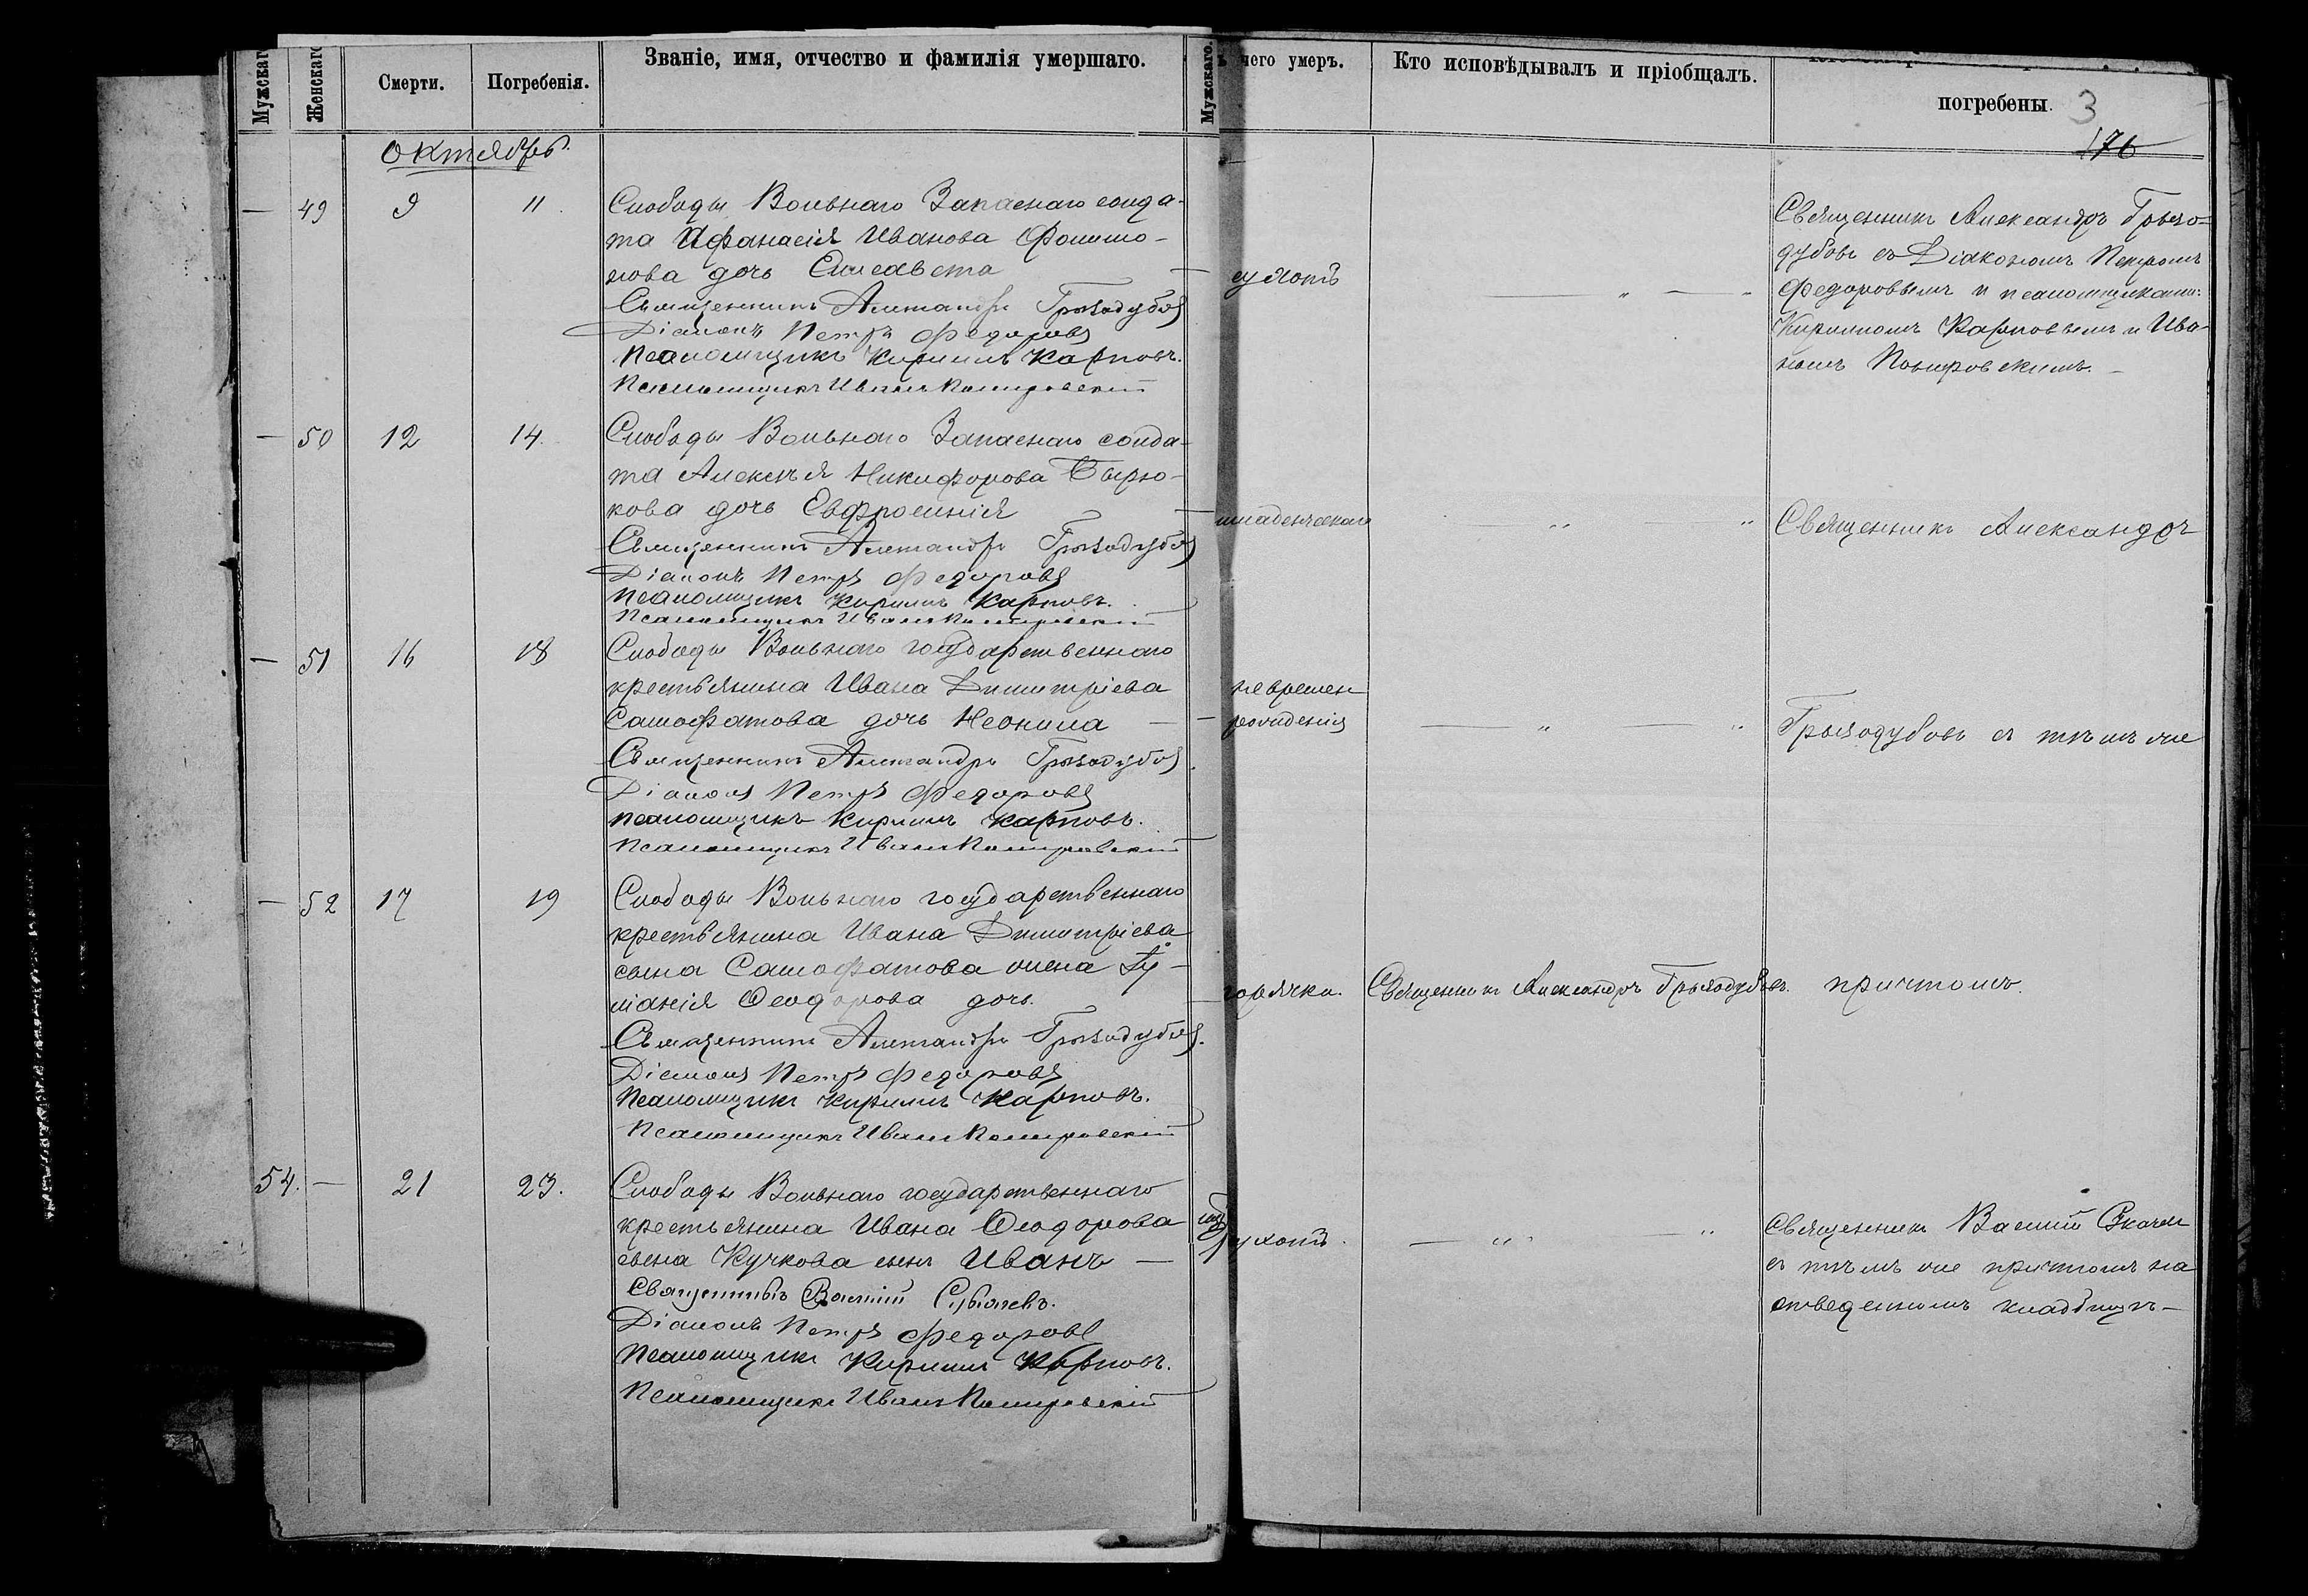 Мужскаг
Женскаго
Смерти.
Погребенія.
Званіе, имя, отчество и фамилія умершаго.
Мужскаго.
чего умеръ.
Кто исповѣдывалъ и пріобщалъ.
погребены.
3
176
октябрь.
— 49 9 11
Слободы Вольнаго Запаснаго солда-
та Афанасія Иванова
дочь Елисавета
Священникъ Александръ Грызодубов
Діаконъ Петръ Федоровъ
Псаломщикъ Кириллъ Карповъ.
Псаломщикъ Иванъ Покировскій
сухотъ
— „ —
Священникъ Александръ Грызо-
дубовъ съ Діакономъ Петромъ
Федоровымъ и псаломщиками:
Кирилломъ Карповымъ и Ива-
номъ
— 50 12 14
Слободы Вольнаго Запаснаго солда-
та Алексѣя Никифорова Бырю-
кова дочь Евфросинія
Священникъ Александръ Грызодубов
Діаконъ Петръ Федоровъ
Псаломщикъ Кириллъ Карповъ.
Псаломщикъ Иванъ
младенческая
„ — „
Священникъ Александръ
— 51 16 18
Слободы Вольнаго государственнаго
крестьянина Ивана Димитріева
Самофатова дочь Неонила —
Священникъ Александръ Грызодубов
Діаконъ Петръ Федоровъ
Псаломщикъ Кириллъ Карповъ.
Псаломщикъ Иванъ
не времен
рожденія
— „ — „
Грызодубовъ съ тѣмъ же
— 52 17 19
Слободы Вольнаго государственнаго
крестьянина Ивана Димитріева
сына Самофатова жена Іу-
ліанія Ѳеодорова дочь.
Священникъ Александръ Грызодубов.
Діаконъ Петръ Федоровъ
Псаломщикъ Кириллъ Карповъ.
Псаломщикъ Иванъ
горячки.
Священникъ Александръ Грызодубовъ.
причтомъ.
54. — 21 23.
Слободы Вольнаго государственнаго
крестьянина Ивана Ѳеодорова
сына Кучкова сынъ Иванъ —
Священникъ Василій
Діаконъ Петръ Федоровъ
Псаломщикъ Кириллъ Карповъ.
Псаломщикъ Иванъ
сухотъ.
— „ — „
Священникъ Василій
съ тѣмъ же причтомъ на
отведенномъ кладбищѣ —